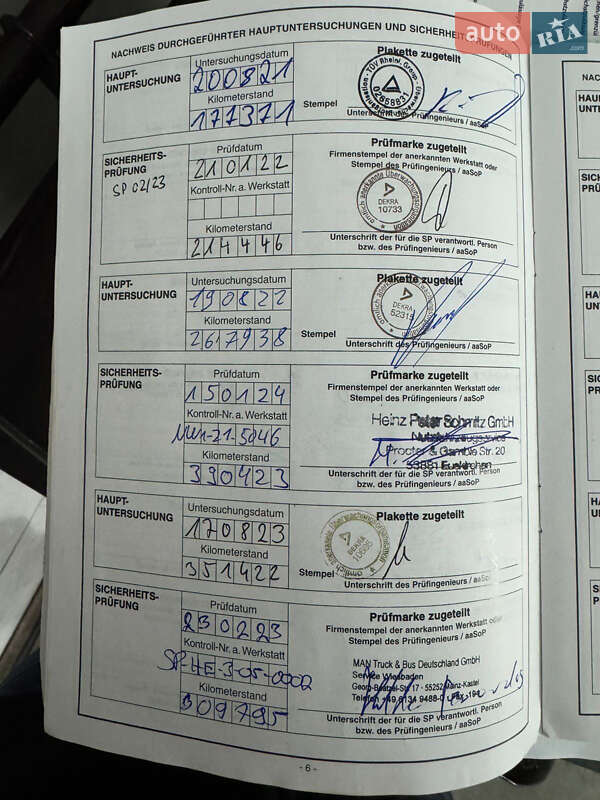 auto RIA.com
NACHWEIS DURCHGEFÜHRTER HAUPTUNTERSUCHUNGEN UND SICHERHEITSPRÜFUNGEN
HAUPT-
UNTERSUCHUNG
Untersuchungsdatum
200821
Kilometerstand
177371
Plakette zugeteilt
TÜV Rheinl. Group
02858831
Stempel
Unterschrift des Prüfingenieurs / aaSoP
SICHERHEITS-
PRÜFUNG
SP 02/23
Prüfdatum
210122
Kontroll-Nr. a. Werkstatt
Kilometerstand
214446
Prüfmarke zugeteilt
Firmenstempel der anerkannten Werkstatt oder
Stempel des Prüfingenieurs / aaSoP
amtlich anerkannte Überwachungsorganisation
DEKRA
10733
Unterschrift der für die SP verantwortl. Person
bzw. des Prüfingenieurs / aaSoP
HAUPT-
UNTERSUCHUNG
Untersuchungsdatum
190822
Kilometerstand
267938
Plakette zugeteilt
DEKRA
52315
Stempel
Unterschrift des Prüfingenieurs / aaSoP
SICHERHEITS-
PRÜFUNG
Prüfdatum
150124
Kontroll-Nr. a. Werkstatt
Kilometerstand
390423
Prüfmarke zugeteilt
Firmenstempel der anerkannten Werkstatt oder
Stempel des Prüfingenieurs / aaSoP
Heinz Peter Schmitz GmbH
Nutzfahrzeugservice
Procter & Gamble Str. 20
53881 Euskirchen
Unterschrift der für die SP verantwortl. Person
bzw. des Prüfingenieurs / aaSoP
HAUPT-
UNTERSUCHUNG
Untersuchungsdatum
170823
Kilometerstand
351422
Plakette zugeteilt
DEKRA
Stempel
Unterschrift des Prüfingenieurs / aaSoP
SICHERHEITS-
PRÜFUNG
Prüfdatum
230223
Kontroll-Nr. a. Werkstatt
SP-HE-3-05-0002
Kilometerstand
309795
Prüfmarke zugeteilt
Firmenstempel der anerkannten Werkstatt oder
Stempel des Prüfingenieurs / aaSoP
MAN Truck & Bus Deutschland GmbH
Service Wiesbaden
55252 Mainz-Kastel
Unterschrift der für die SP verantwortl. Person
bzw. des Prüfingenieurs / aaSoP
- 6 -